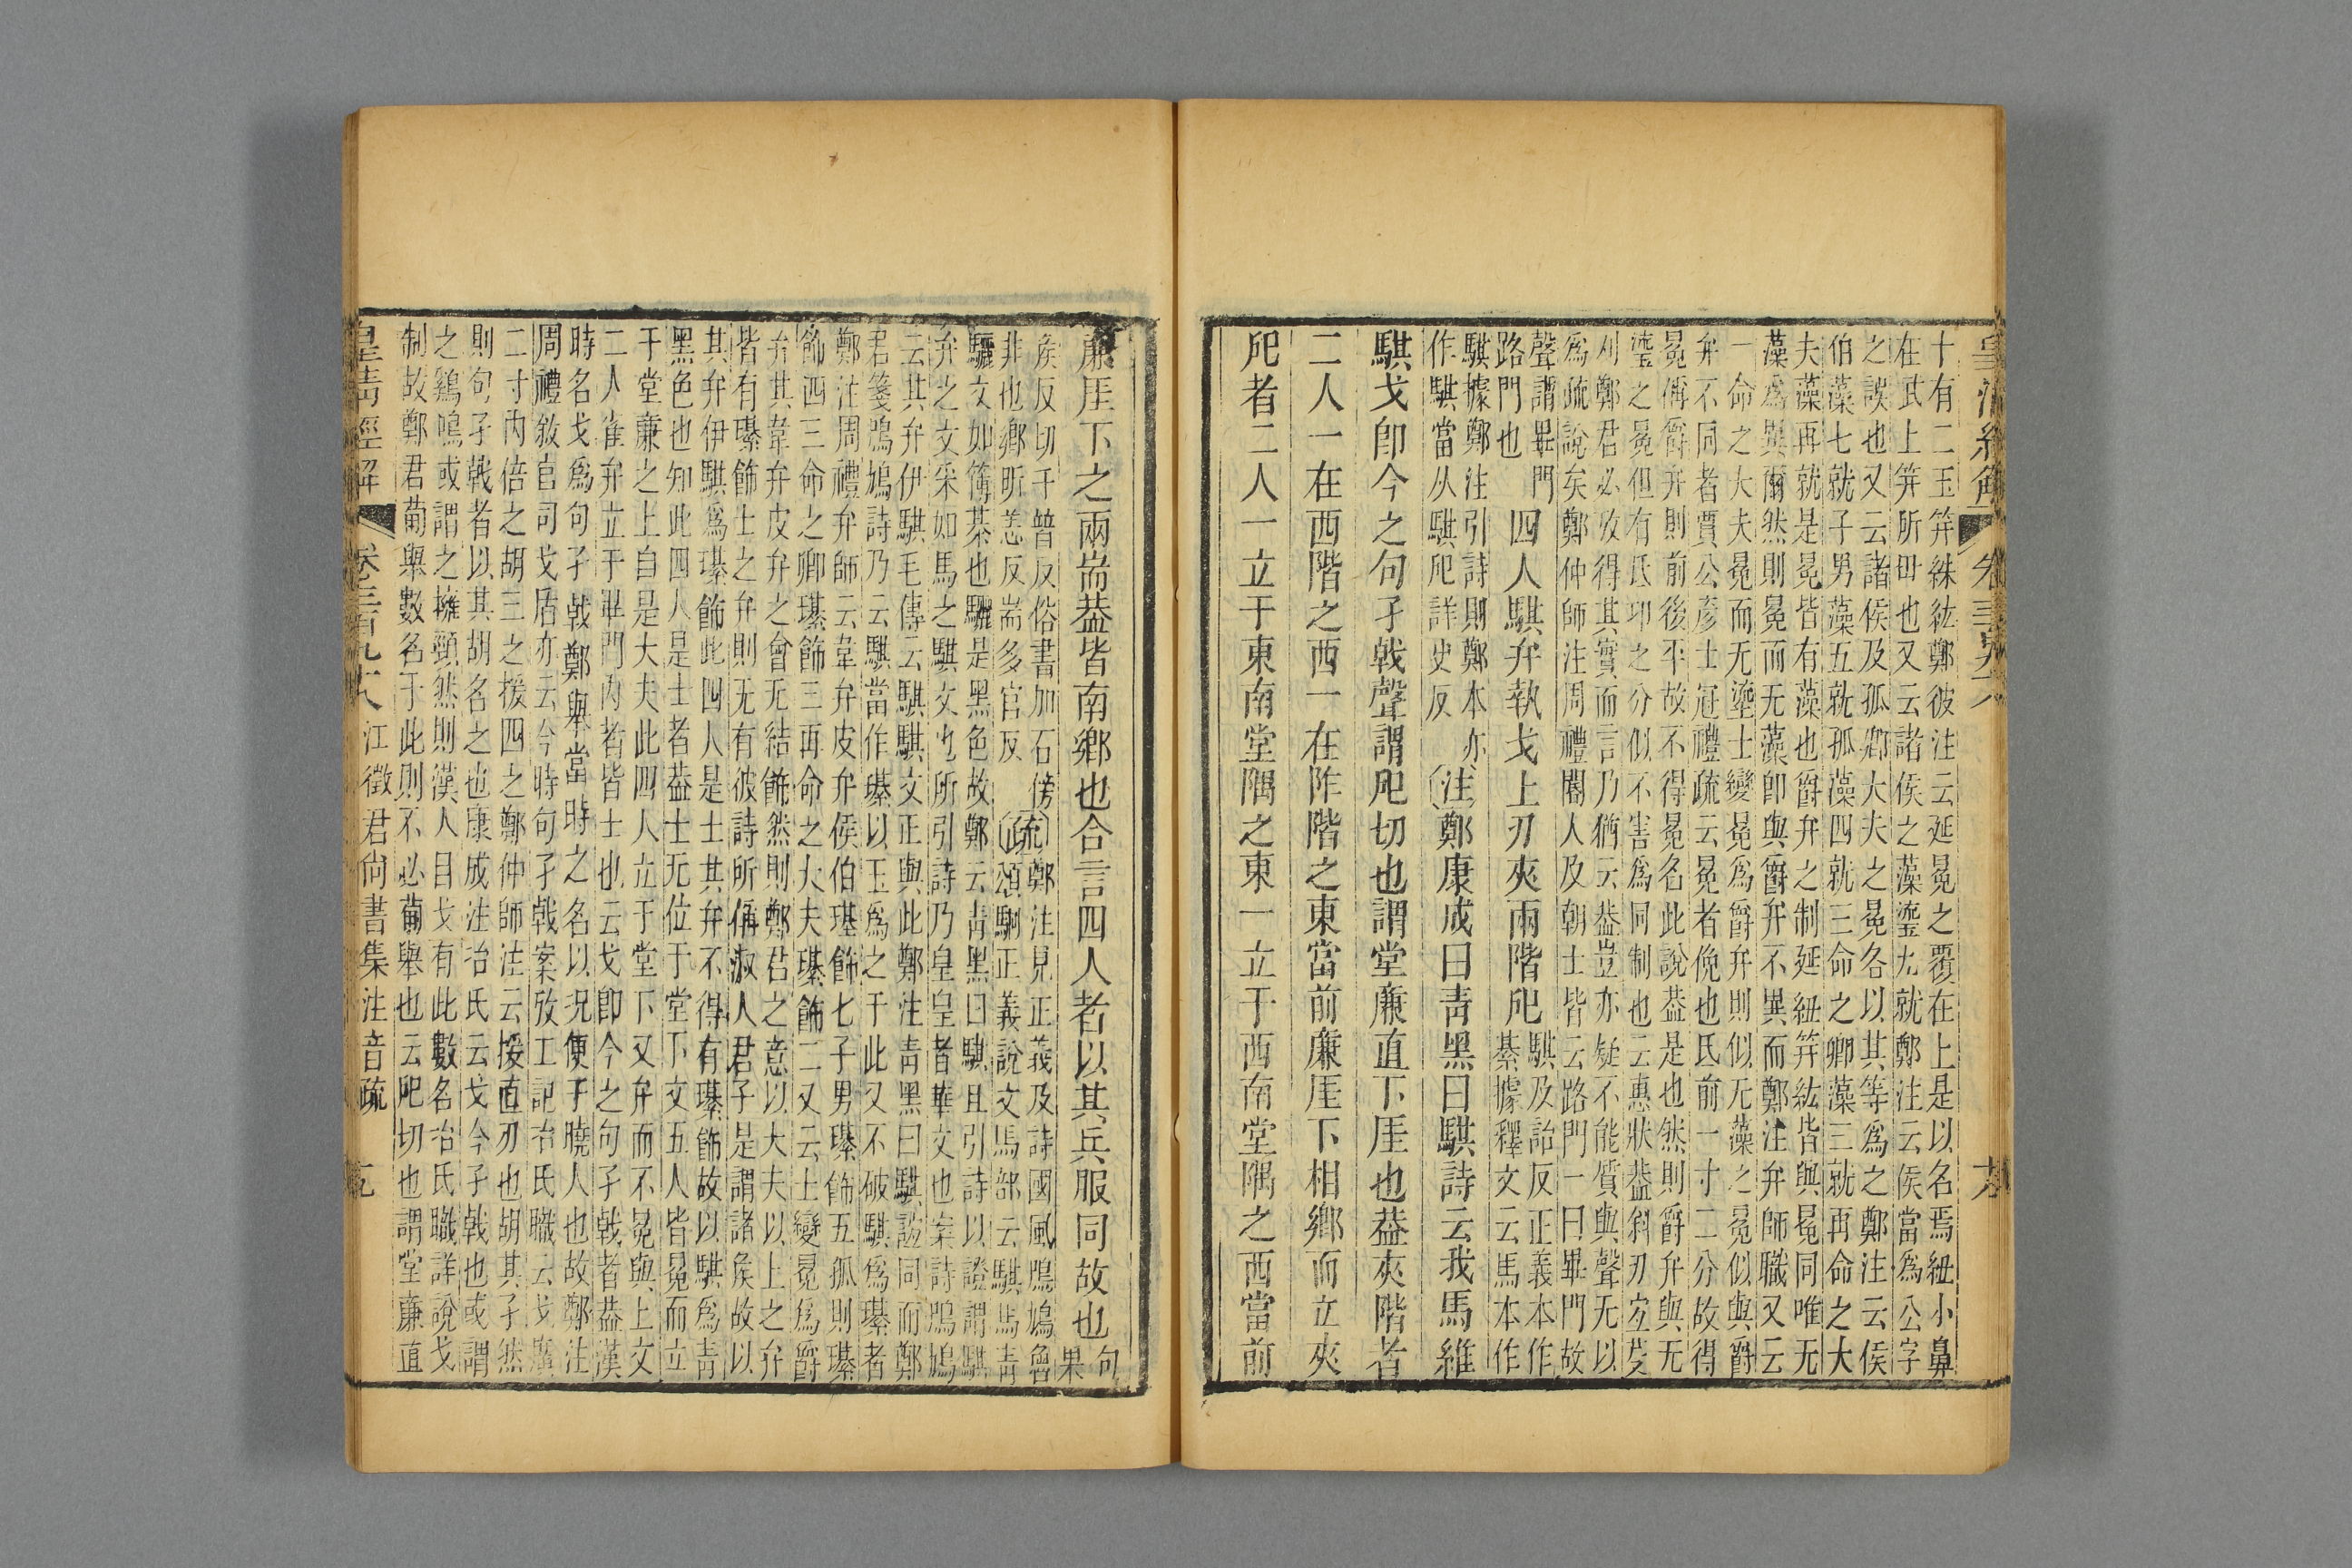 十有二玉笄紘鄭彼注云延冕之覆在上是以名焉紐小鼻
在武上笄所毌也又云諸侯之藻瑬九就鄭注云侯當爲公字
之誤也又云諸侯及孤卿大夫之冕各以其等爲之鄭注云侯
伯藻七就子男藻五就孤藻四就三命之卿藻三就再命之大
夫藻再就是冕皆有藻也爵弁之制延紐笄紘皆與冕同唯无
藻爲異爾然則冕而无藻卽與爵弁不異而鄭注弁師職又云
一命之大夫冕而无瑬士變冕爲爵弁則似无藻之冕似與爵
弁不同者賈公彥士冠禮疏云冕者俛也氐前一寸二分故得
冕偁爵弁則前後平故不得冕名此說葢是也然則爵弁與无
瑬之冕但有氐卬之分似不害爲同制也云惠狀葢斜刃宜芟
刈鄭君必攷得其實而言乃猶云葢豈亦疑不能質與聲无以
爲疏說矣鄭仲師注周禮閽人及朝士皆云路門一曰畢門故
聲謂畢門
路門也
四人騏弁執戈上刃夾兩階戺
騏及詒反正義本作
綦據釋文云馬本作
騏據鄭注引詩則鄭本亦
作騏當从騏戺詳史反
注鄭康成曰靑黑曰騏詩云我馬維
騏戈卽今之句孑戟聲謂戺切也謂堂廉直下厓也葢夾階者
二人一在西階之西一在阼階之東當前廉厓下相鄉而立夾
戺者二人一立于東南堂隅之東一立于西南堂隅之西當前
廉厓下之兩耑葢皆南鄉也合言四人者以其兵服同故也
句果
矦反切千普反俗書加石傍
非也鄉昕恙反耑多官反
疏鄭注見正義及詩國風鳲鳩魯
頌駉正義說文馬部云騏馬靑
驪文如簙棊也驪是黑色故鄭云靑黑曰騏且引詩以證謂騏
弁之文采如馬之騏文也所引詩乃皇皇者華文也案詩鳲鳩
云其弁伊騏毛傳云騏騏文正與此鄭注靑黑曰騏誼同而鄭
君箋鳲鳩詩乃云騏當作璂以玉爲之于此又不破騏爲璂者
鄭注周禮弁師云韋弁皮弁侯伯璂飾七子男璂飾五孤則璂
飾四三命之卿璂飾三再命之大夫璂飾二又云士變冕爲爵
弁其韋弁皮弁之會无結飾然則鄭君之意以大夫以上之弁
皆有璂飾士之弁則无有彼詩所偁淑人君子是謂諸矦故以
其弁伊騏爲璂飾此四人是士其弁不得有璂飾故以騏爲靑
黑色也知此四人是士者葢士无位于堂下文五人皆冕而立
于堂廉之上自是大夫此四人立于堂下又弁而不冕與上文
二人雀弁立于畢門內者皆士也云戈卽今之句孑戟者葢漢
時名戈爲句孑戟鄭舉當時之名以況便于曉人也故鄭注
周禮敘官司戈盾亦云今時句孑戟案攷工記冶氏職云戈廣
二寸內倍之胡三之援四之鄭仲師注云援直刃也胡其孑然
則句孑戟者以其胡名之也康成注冶氏云戈今孑戟也或謂
之鷄鳴或謂之擁頸然則漢人目戈有此數名冶氏職詳說戈
制故鄭君葡舉數名于此則不必葡舉也云戺切也謂堂廉直
皇清經解 卷三百九十八 江徵君尚書集注音疏